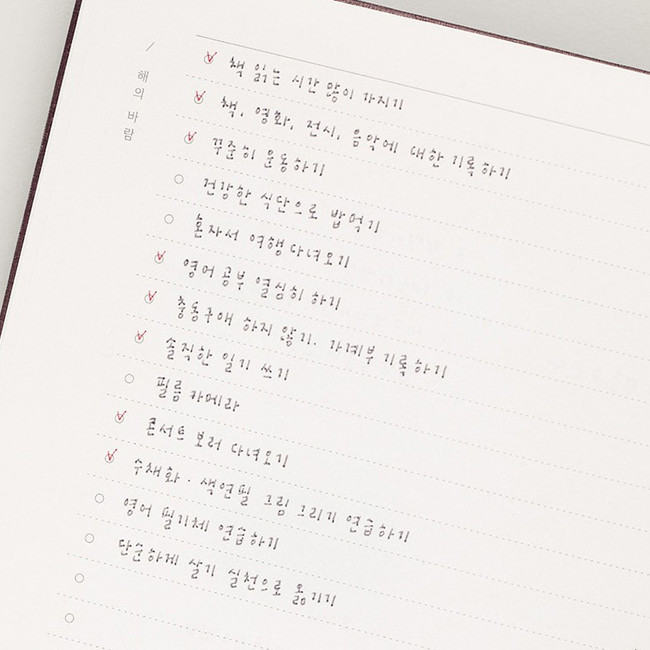 /
해의 바람
책 읽는 시간 많이 가지기
책, 영화, 전시, 음악에 대한 기록하기
꾸준히 운동하기
건강한 식단으로 밥먹기
혼자서 여행 다녀오기
영어 공부 열심히 하기
충동구매 하지 않기. 가계부 기록하기
솔직한 일기 쓰기
필름카메라
콘서트 보러 다녀오기
수채화 · 색연필 그림 그리기 연습하기
영어 필기체 연습하기
단순하게 살기 실천으로 옮기기